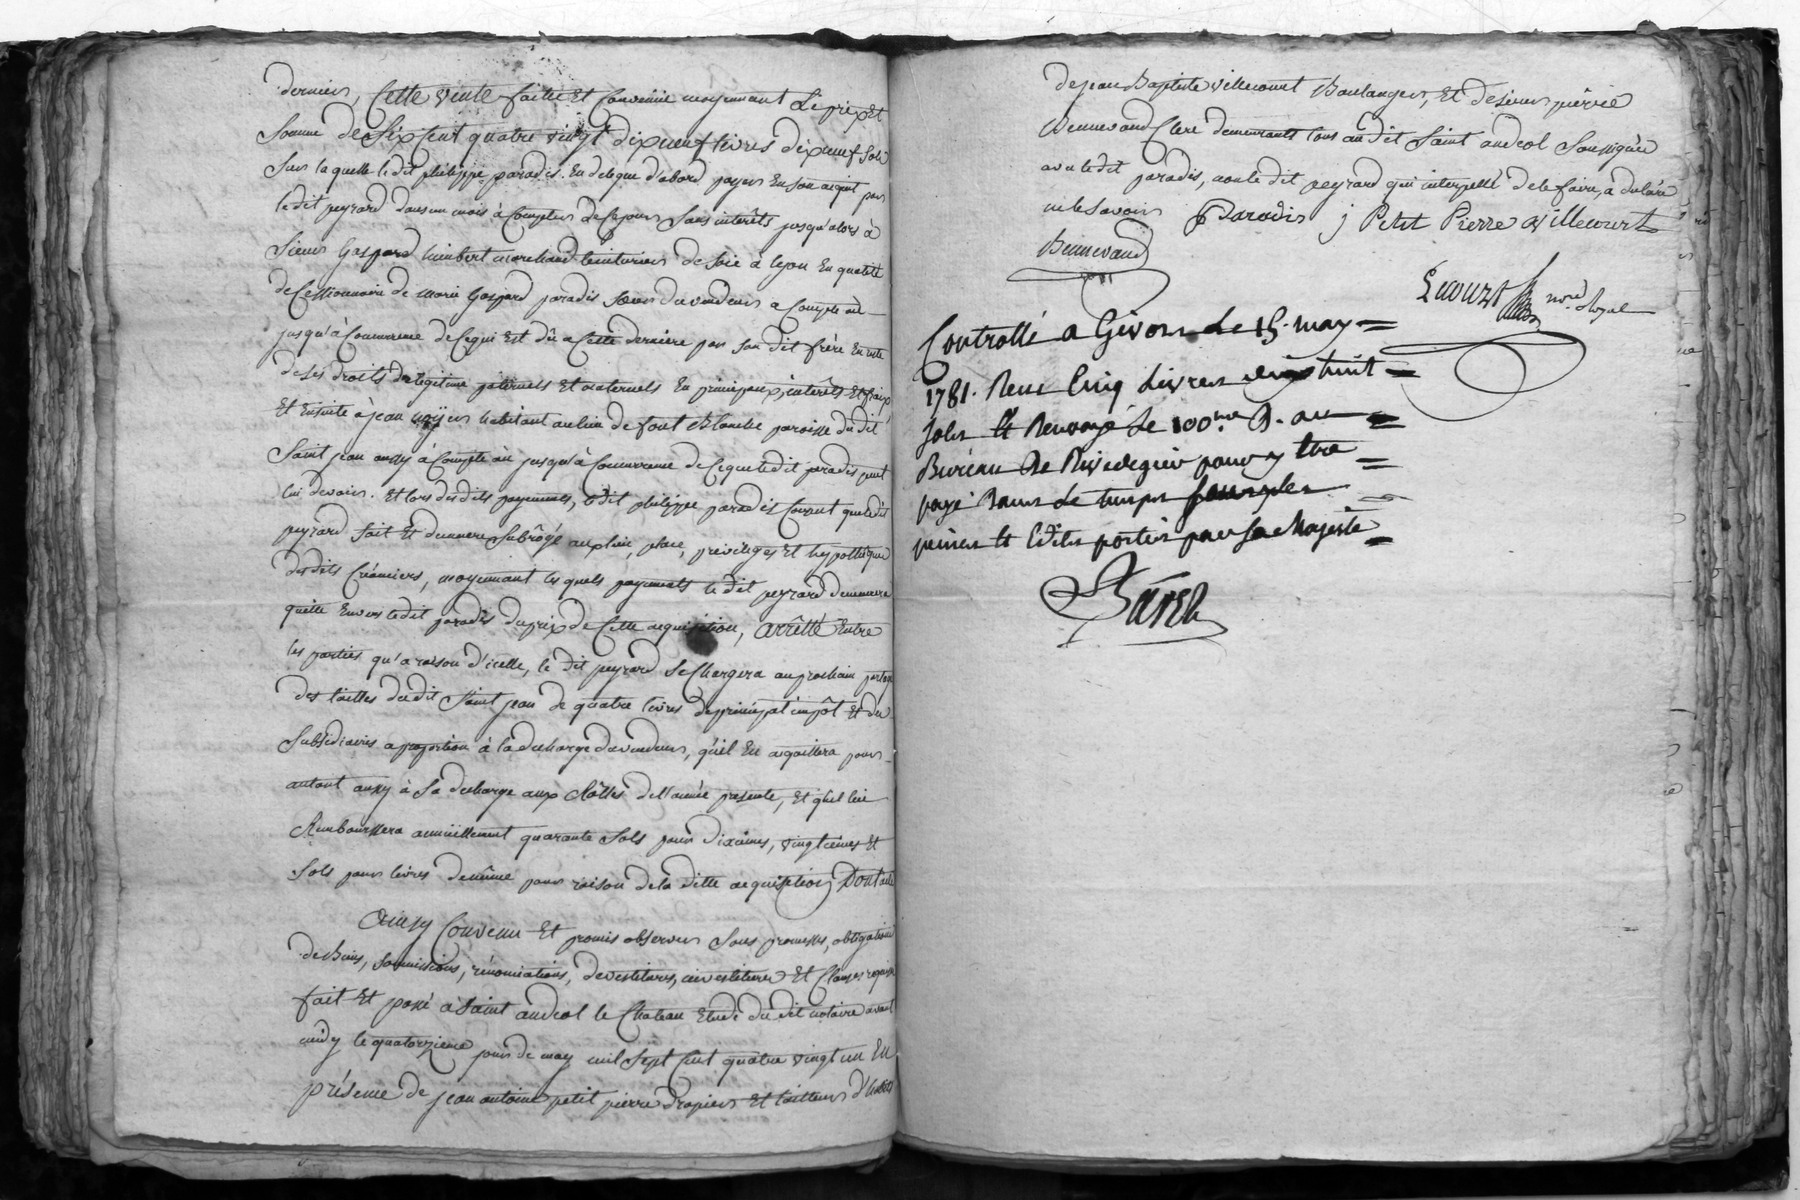 derniers, Cette vente faitte Et Convenüe moyennant Le prix Et
Somme de Six Cent quatre vingt dixneuf livres dixneuf Sols
Sur laquelle ledit philippe paradis En delegue d'abord payer En son acquit par
ledit peyrard dans un mois à Compter de Ce jour Sans interêts jusqu'alors à
Sieur Gaspard himbert marchand teinturier de Soie à Lyon En qualité
de Cessionnaire de marie Gaspard paradis Sœur du vendeur a Compte où
jusqu'à Concurrence de Cequi Est dû a Cette derniere par Son dit frère En reste
de Ses droits de legitime paternels Et maternels En principaux, interêts Et fraix
Et Ensuite à jean habitant au lieu de font Blanche paroisse du dit
Saint jean aussy à Compte où jusqu'à Concurrence de Ceque ledit paradis peut
lui devoir. Et lors des dits payements, ledit philippe paradis Consent que ledit
peyrard Soit Et demeure Subrôgé au lieu, place, privileges Et hypotheques
des dits Créanciers, moyennant les quels payements le dit peyrard demeurera
quitte Envers ledit paradis du prix de Cette acquisition, arrêtté Entre
les parties qu'a raison d'icelle, le dit peyrard Se Chargera au prochain
des tailles du dit Saint jean de quatre livres de principal impôt Et du
Subsidiaire a proportion à la decharge du vendeur, qu'il En acquittera pour
autant aussy à Sa decharge aux Rôlles de l'année presente, Et qu'il lui
Remboursera annuellement quarante Sols pour dixaines, vingtiemes Et
Sols pour livres de même pour raison de la ditte acquisition Dont acte
Ainsy Convenu Et promis observer Sous promesses, obligations
de Biens, Soumissions, rénonciations, devestitures, investitures Et Clauses requises
fait Et passé à Saint andeol le Chateau Etude du dit notaire avant
midy le quatorzieme jour de may mil Sept Cent quatre vingt un En
présence de jean antoine petit pierre drapier Et tailleur d'habits
de jean Baptiste villecourt Boulanger, Et de Sieur pierre
Bennevaud Clerc demeurants tous audit Saint andeol Soussignés
avec ledit paradis, non le dit peyrard qui interpellé de le faire, a déclaré
ne le Savoir Paradis j Petit Pierre villecourt
Bennevaud
Lecourt nore Royal
Controllé a Givors Le 15. may
1781. Reçu Cinq Livres huit
Sols Et Renvoyé le 100me D. au
Bureau de Riverie pour y être
payé dans le temps Sous les
peines Et Edits portés par Sa Majesté